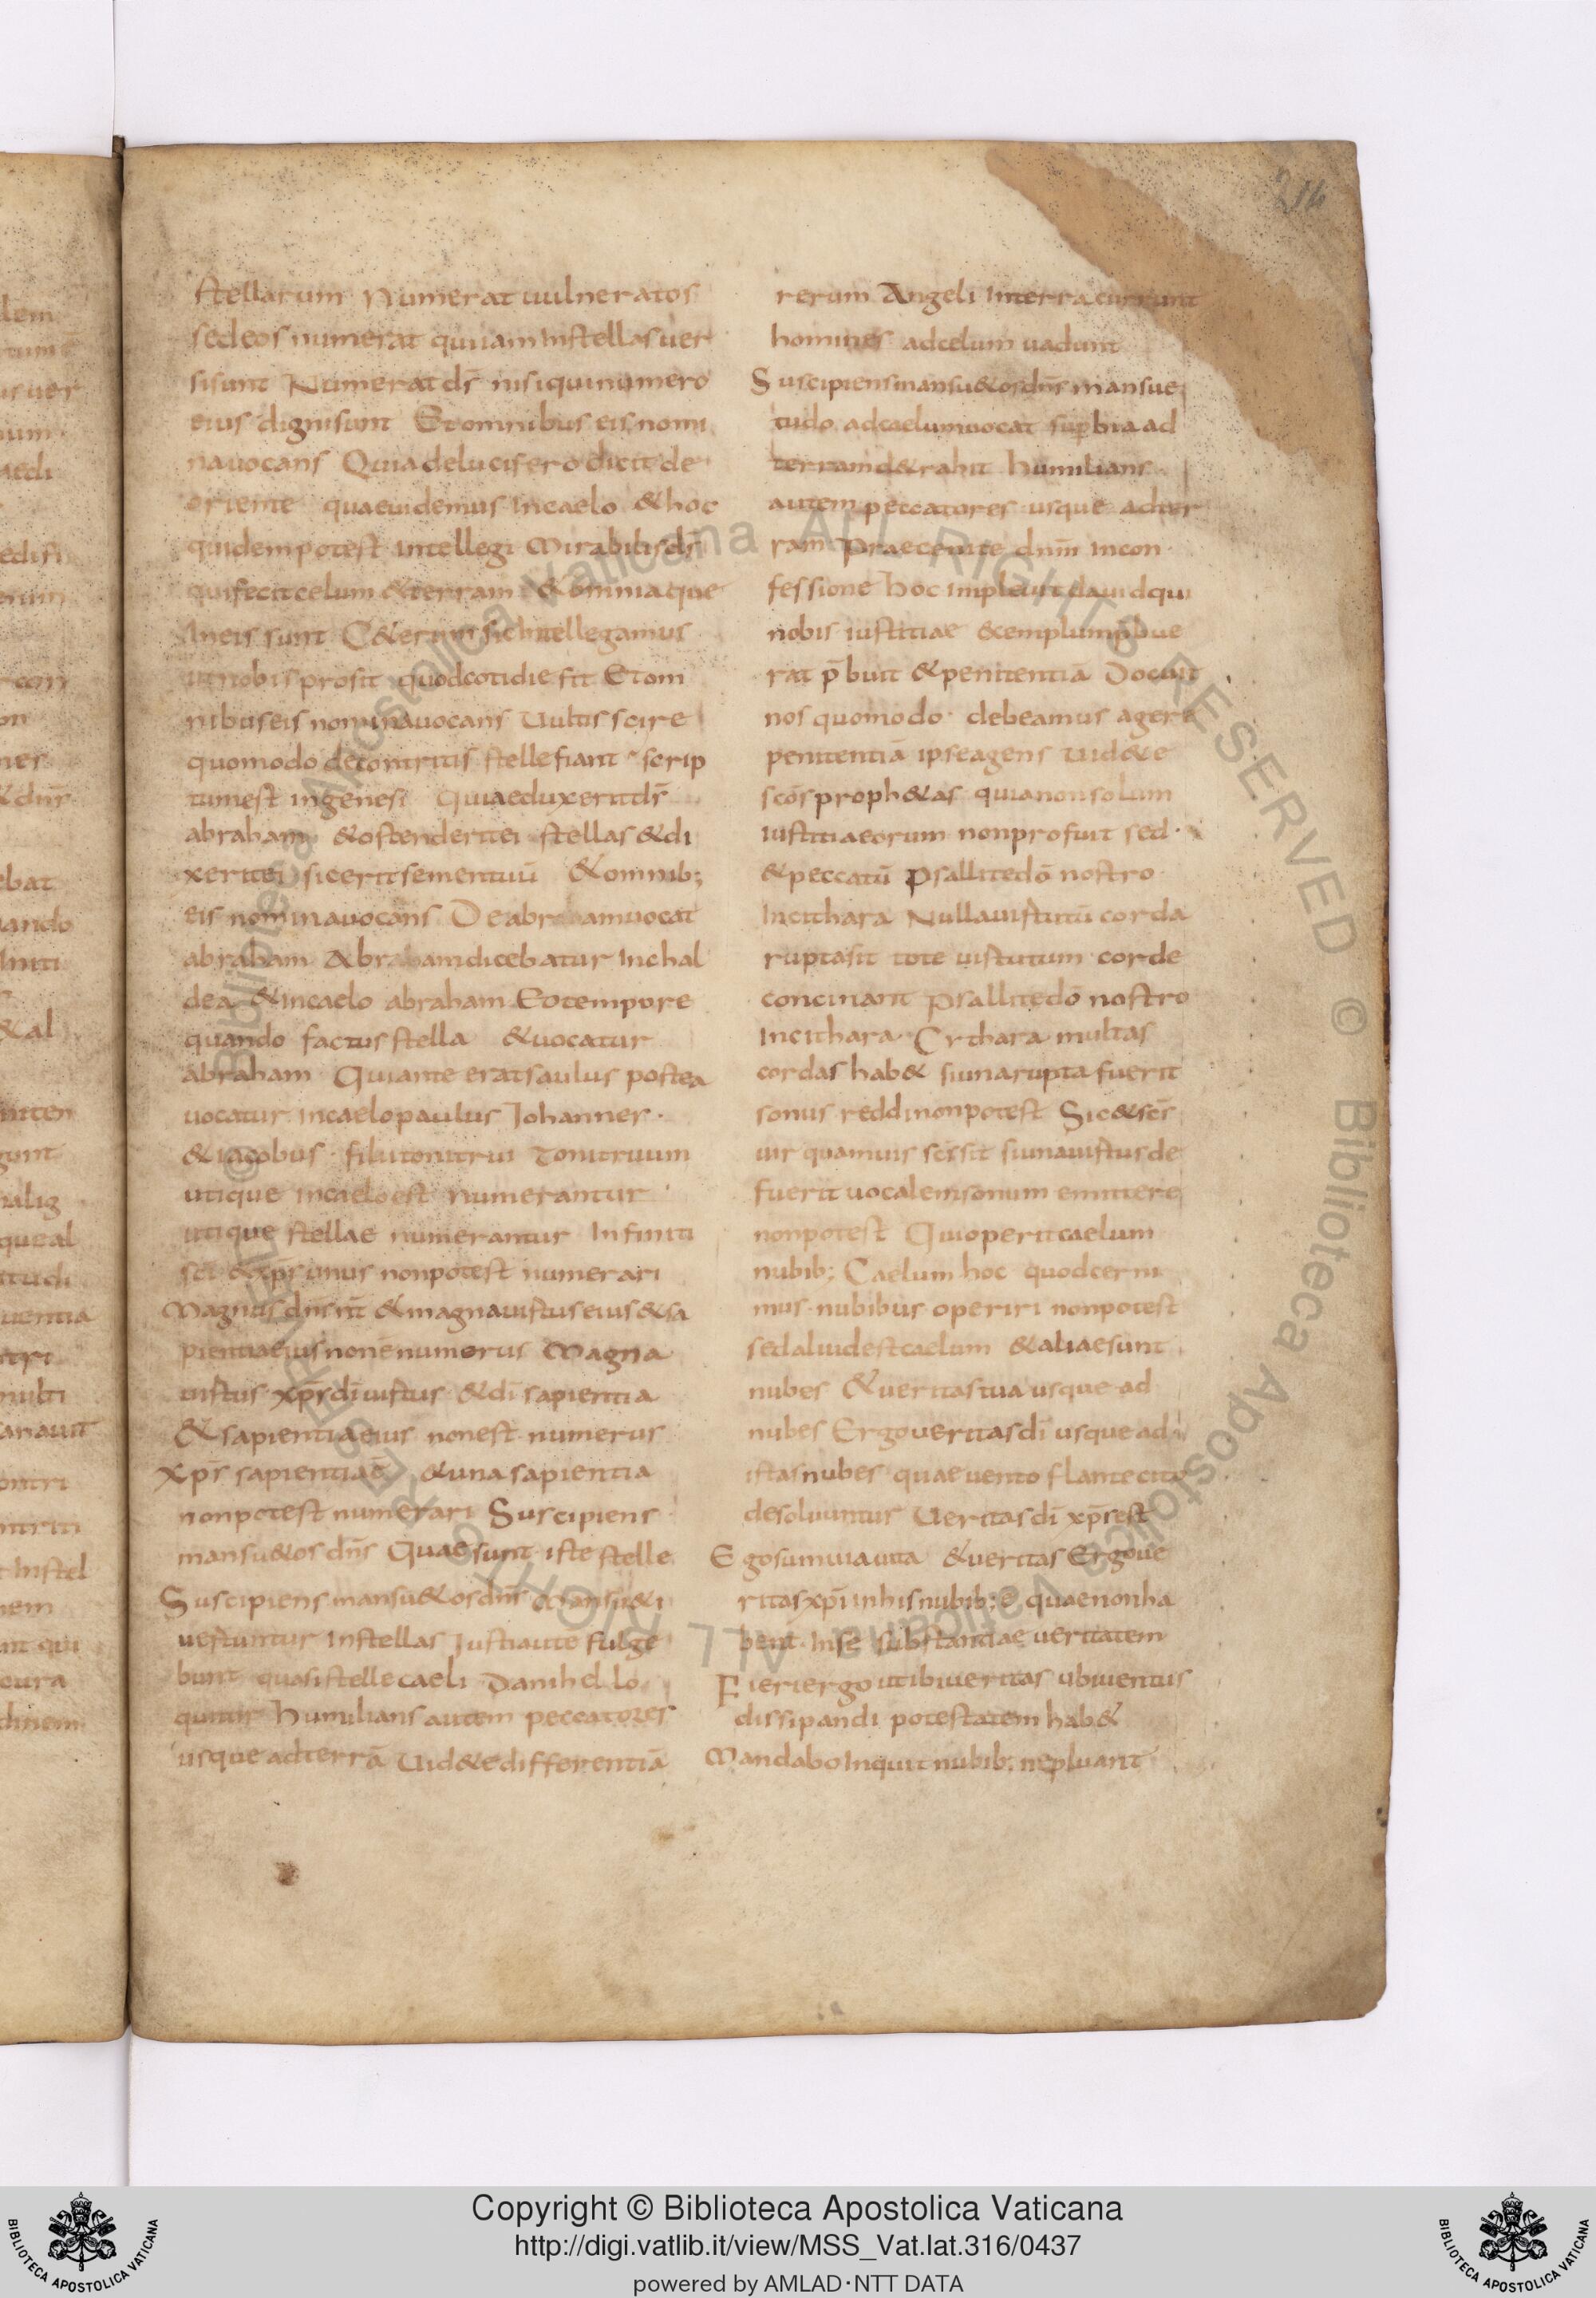 stellarum Numerat uulneratos
sed eos numerat qui iam in stellas uer
si sunt Numerat d̄s nisi qui numero
eius digni sunt Et omnibus eis nomi
na uocans Quia de lucifero dicit de
oriente quae uidemus in caelo & hoc
quidem potest intellegi Mirabilis d̄s
qui fecit celum & terram & omnia que
in eis sunt C&erum sic intellegamus
ut nobis prosit quod cotidie fit Et om
nibus eis nomina uocans Uultis scire
quomodo de contritis stelle fiant scrip
tum est in genesi Quia eduxerit d̄s
abraham & ostenderit ei stellas & di
xerit ei sic erit semen tuū & omnib;
eis nomina uocans De abraham uocat
abraham Abraham dicebatur in chal
dea & in caelo abraham Eo tempore
quando factus stella & uocatur
abraham Qui ante erat saulus postea
uocatur in caelo paulus Iohannes
& iacobus filii tonitrui Tonitruum
utique in caelo est numerantur
utique stellae numerantur Infiniti
sc̄i & xp̄s unus non potest numerari
Magnus dn̄s n̄r & magna uirtus eius & sa
pientiae eius non ē numerus Magna
uirtus xp̄s dī uirtus & dī sapientia
& sapientiae eius non est numerus
Xp̄s sapientia ē & una sapientia
non potest numerari Suscipiens
mansu&os dn̄s Quae sunt iste stelle
Suscipiens mansu&os dn̄s Mansu&i
uertuntur in stellas Iusti autē fulge
bunt quasi stelle caeli Danihel lo
quitur humilians autem peccatores
usque ad terrā Uid&e differentiā
rerum Angeli in terra currunt
homines ad celum uadunt
Suscipiens mansu&os dn̄s mansue
tudo ad caelum uocat sup̄bia ad
terram d&rahit humilians
autem peccatores usque ad ter
ram Praecenite dn̄m in con
fessione hoc impleuit dauid qui
nobis iustitiae &emplum p̄bue
rat p̄buit & penitentiā Docuit
nos quomodo debeamus agere
penitentiā ipse agens Uid&e
scōs proph&as quia non solum
iustitia eorum non profuit sed
& peccatū Psallite dō nostro
in cithara Nulla uirtutū corda
rupta sit tote uirtutum corde
concinant Psallite dō nostro
in cithara Cythara multas
cordas hab& si una rupta fuerit
sonus reddi non potest Sic & sc̄s
uir quamuis sc̄s sit si una uirtus de
fuerit uocalem sonum emittere
non potest Qui operit caelum
nubib; Caelum hoc quod cerni
mus nubibus operiri non potest
sed aliud est caelum & aliae sunt
nubes & ueritas tua usque ad
nubes Ergo ueritas dī usque ad
istas nubes quae uento flante cito
desoluuntur Ueritas dī xp̄s est
Ego sum uia uita & ueritas Ergo ue
ritas xp̄i in his nubib; ē quae non ha
bent in se substantiae ueritatem
Fieri ergo ut ibi ueritas ubi uentus
dissipandi potestatem hab&
Mandabo inquit nubib; ne pluant
Copyright © Biblioteca Apostolica Vaticana
http://digi.vatlib.it/view/MSS_Vat.lat.316/0437
powered by AMLAD·NTT DATA